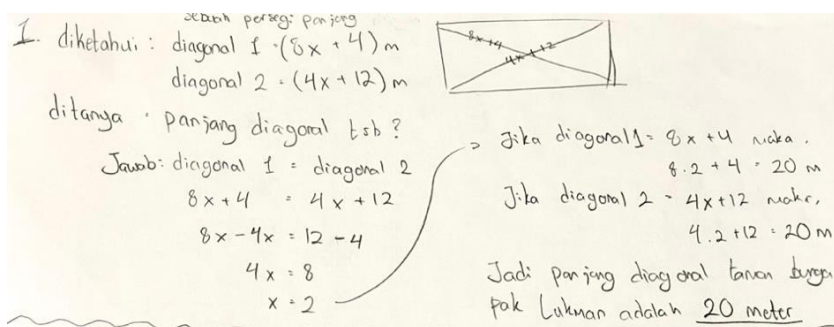 sebuah persegi panjang
1. diketahui : diagonal 1 = (8x + 4) m
diagonal 2 = (4x + 12) m
8x+4
4x+12
ditanya : panjang diagonal tsb ?
Jawab : diagonal 1 = diagonal 2
8x+4 = 4x+12
8x-4x = 12-4
4x = 8
x = 2
Jika diagonal 1 = 8x+4 maka,
8.2+4 = 20 m
Jika diagonal 2 = 4x+12 maka,
4.2+12 = 20 m
Jadi panjang diagonal taman bunga
pak Lukman adalah 20 meter